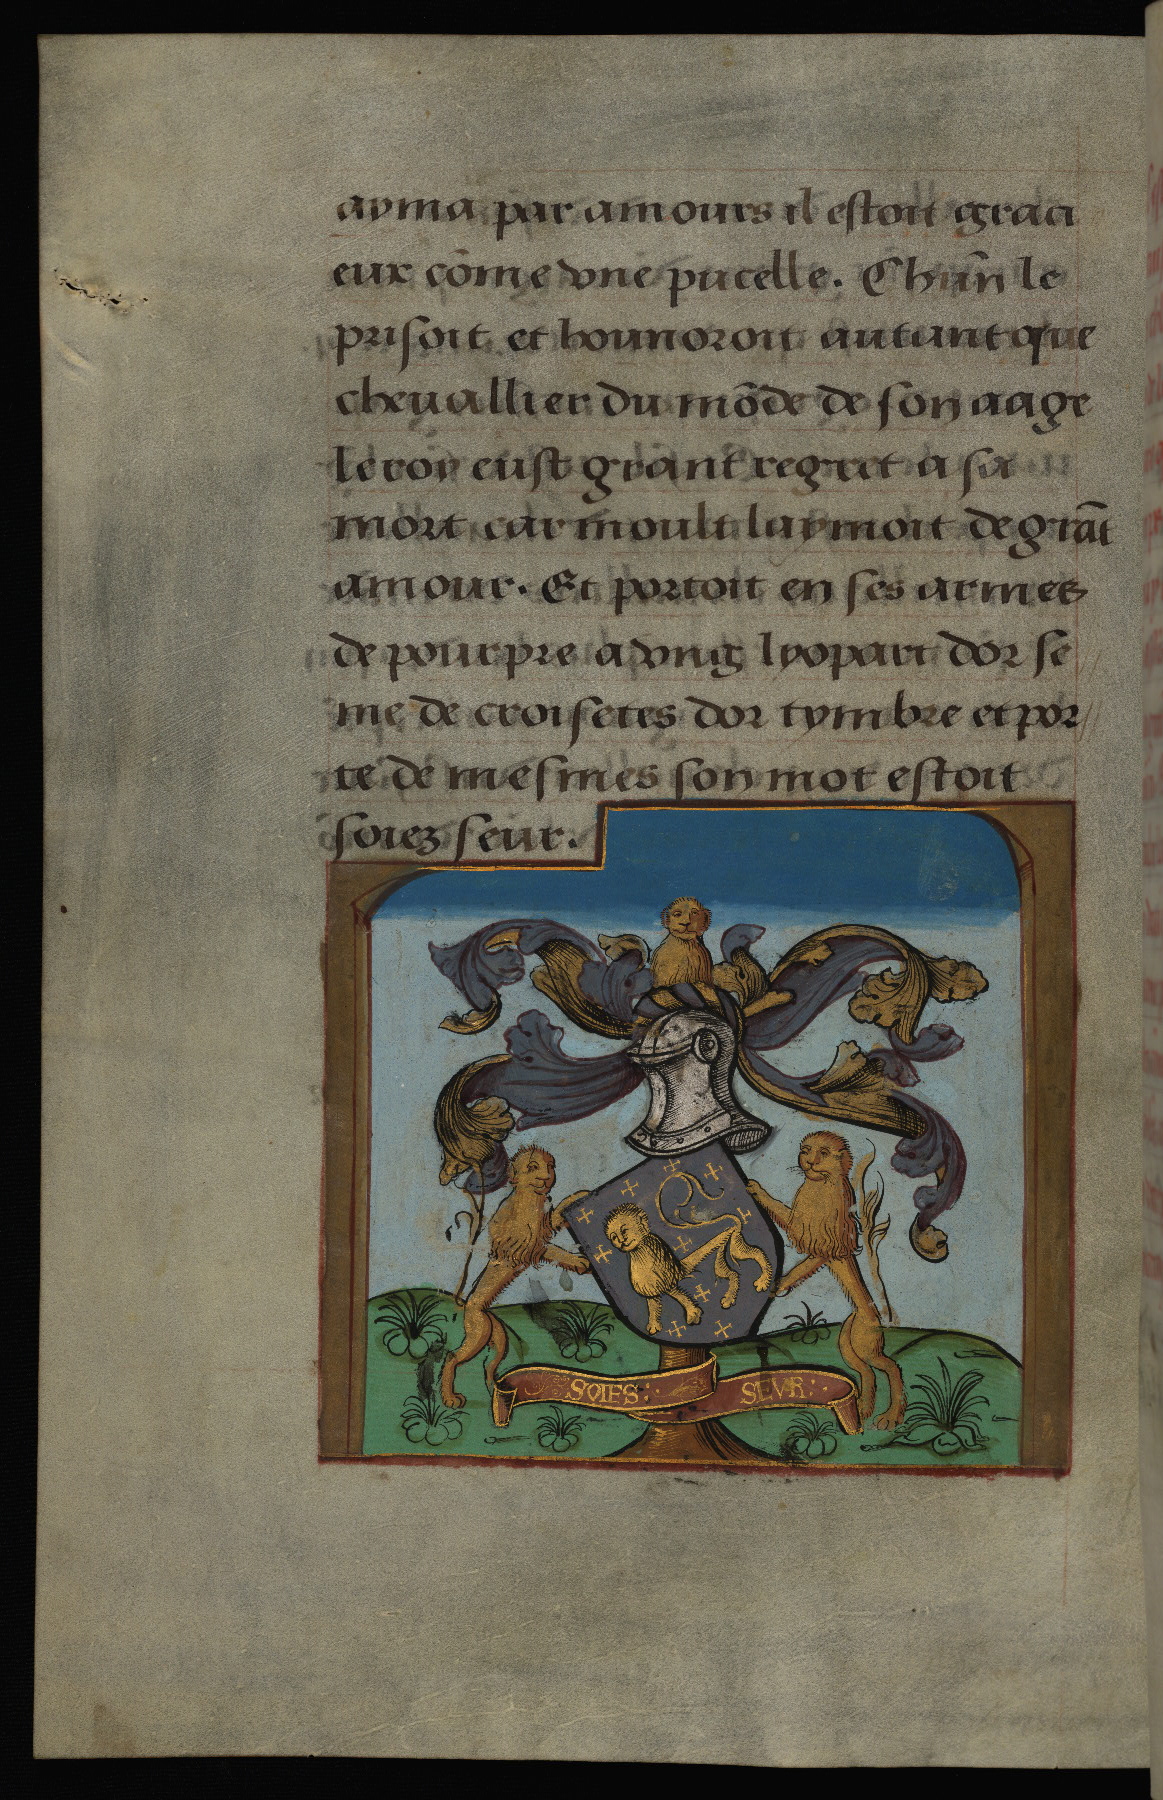 ayma par amours il estoit graci
eux cōme vne pucelle. Chūn le
prisoit et hounoroit autant que
cheuallier du mōde de son aage
le roy eust grant regret a sa
mort car moult laymoit de grāt
amour. Et portoit en ses armes
de pourpre a vnig lyopart dor se
me de croisetes dor tymbre et por
te de mesmes son mot estoit
soiez seur.
SOIES: SEVR: